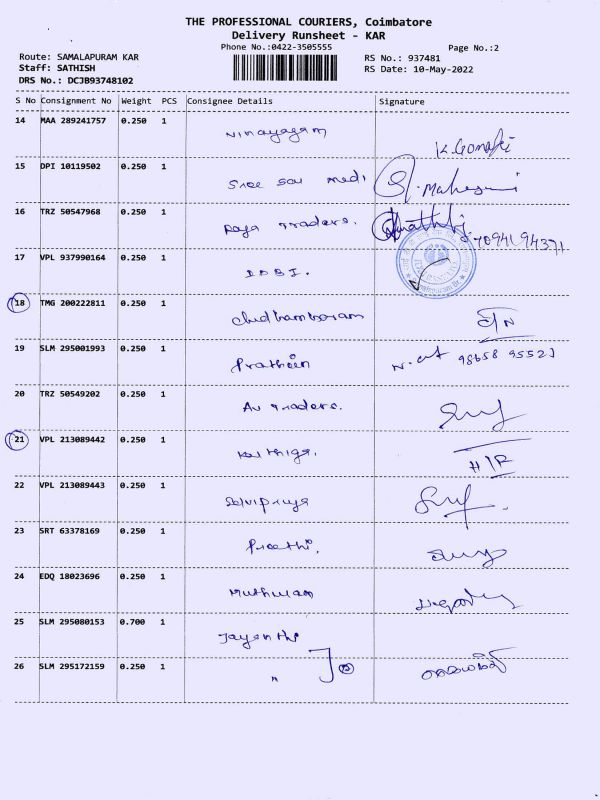 THE PROFESSIONAL COURIERS, Coimbatore
Delivery Runsheet - KAR
Phone No.:0422-3505555
Page No.:2
Route: SAMALAPURAM KAR
RS No.: 937481
Staff: SATHISH
RS Date: 10-May-2022
DRS No.: DCJB93748102
S No Consignment No Weight PCS Consignee Details Signature
14 MAA 289241757 0.250 1 Vinayagam
15 DPI 10119502 0.250 1 Sree Sai medi
16 TRZ 50547968 0.250 1 Raja Traders. 7094194371
17 VPL 937990164 0.250 1 IDBI.
18 TMG 200222811 0.250 1 Chidhamboram D/N
19 SLM 295001993 0.250 1 Pratheen 98658 95523
20 TRZ 50549202 0.250 1 AV Traders.
21 VPL 213089442 0.250 1 Karthiga. H/R
22 VPL 213089443 0.250 1 Selvipriya
23 SRT 63378169 0.250 1 Preethi.
24 EDQ 18023696 0.250 1
25 SLM 295080153 0.700 1 Jayanthi
26 SLM 295172159 0.250 1 "